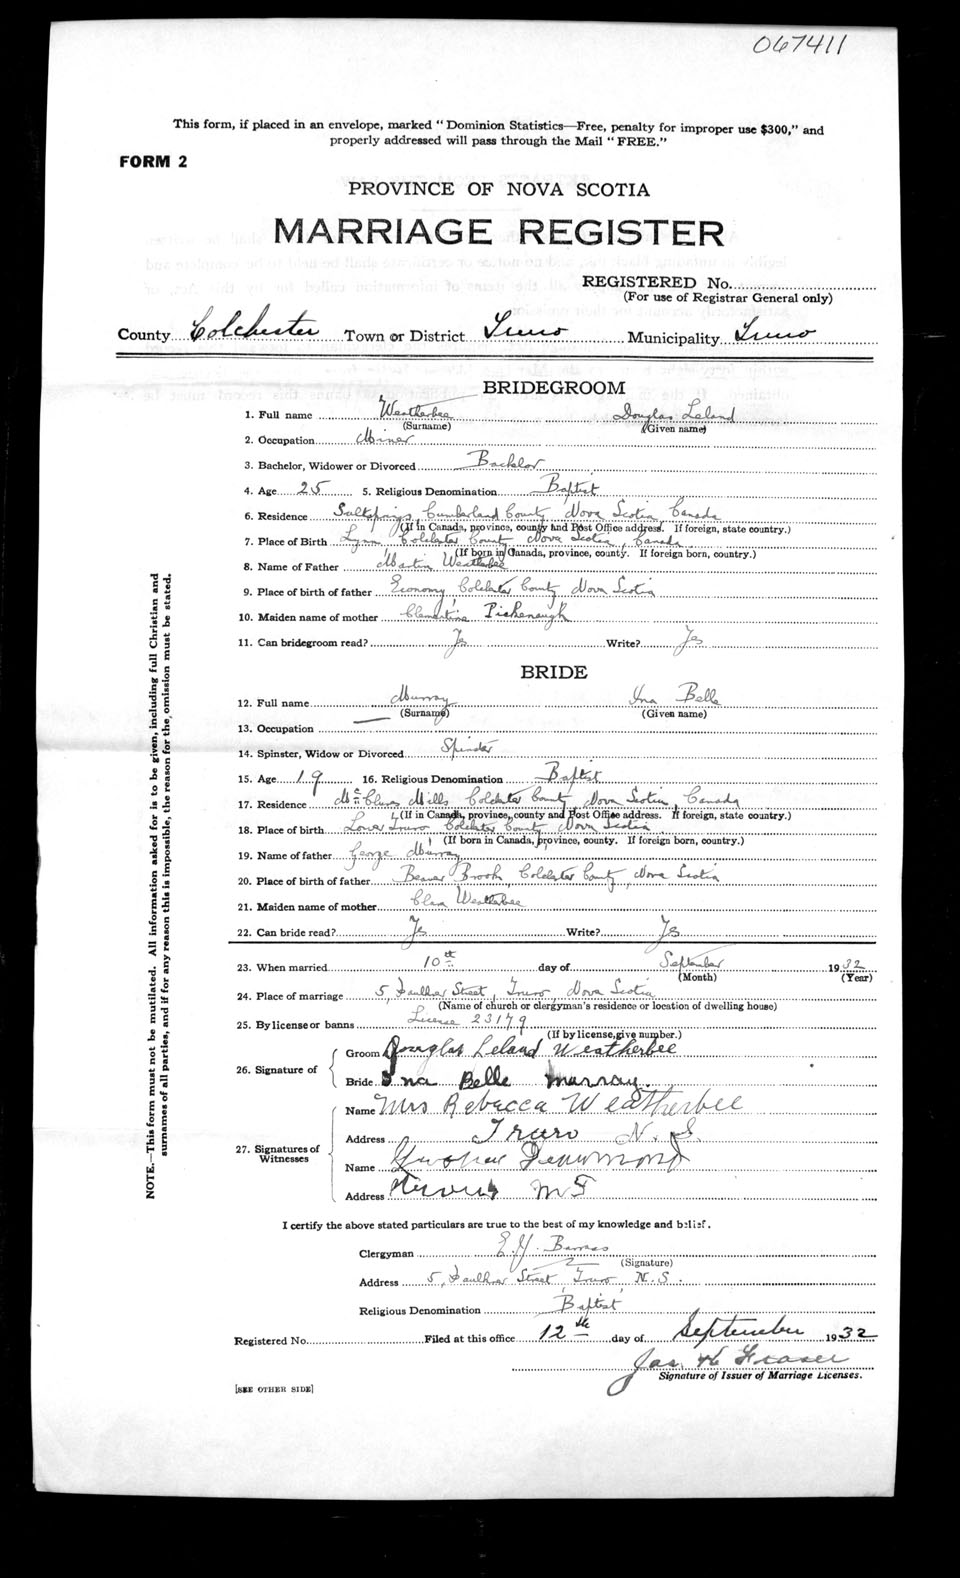 067411
This form, if placed in an envelope, marked "Dominion Statistics—Free, penalty for improper use $300," and
properly addressed will pass through the Mail "FREE."
FORM 2
PROVINCE OF NOVA SCOTIA
MARRIAGE REGISTER
REGISTERED No.
(For use of Registrar General only)
County Colchester Town or District Truro Municipality Truro
BRIDEGROOM
1. Full name Weatherbee Douglas Leland
(Surname) (Given name)
2. Occupation Miner
3. Bachelor, Widower or Divorced Bachelor
4. Age 25 5. Religious Denomination Baptist
6. Residence Saltsprings, Cumberland County, Nova Scotia, Canada
(If in Canada, province, county and Post Office address. If foreign, state country.)
7. Place of Birth Lynn, Colchester County, Nova Scotia, Canada
(If born in Canada, province, county. If foreign born, country.)
8. Name of Father Martin Weatherbee
9. Place of birth of father Economy, Colchester County, Nova Scotia
10. Maiden name of mother Clementine
11. Can bridegroom read? Yes Write? Yes
BRIDE
12. Full name Murray Ina Belle
(Surname) (Given name)
13. Occupation —
14. Spinster, Widow or Divorced Spinster
15. Age 19 16. Religious Denomination Baptist
17. Residence McClures Mills, Colchester County, Nova Scotia, Canada
(If in Canada, province, county and Post Office address. If foreign, state country.)
18. Place of birth Lower Truro, Colchester County, Nova Scotia
(If born in Canada, province, county. If foreign born, country.)
19. Name of father George Murray
20. Place of birth of father Beaver Brook, Colchester County, Nova Scotia
21. Maiden name of mother Clara Weatherbee
22. Can bride read? Yes Write? Yes
23. When married 10th day of September 1932
(Month) (Year)
24. Place of marriage 5, Faulkner Street, Truro, Nova Scotia
(Name of church or clergyman's residence or location of dwelling house)
25. By license or banns License 23179
(If by license, give number.)
26. Signature of
Groom Douglas Leland Weatherbee
Bride Ina Belle Murray.
27. Signatures of Witnesses
Name Mrs Rebecca Weatherbee
Address Truro N. S.
Name
Address
I certify the above stated particulars are true to the best of my knowledge and belief.
Clergyman E. J. Barrass
(Signature)
Address 5, Faulkner Street, Truro, N.S.
Religious Denomination "Baptist"
Registered No. Filed at this office 12th day of September 1932
Jas. H Fraser
Signature of Issuer of Marriage Licenses.
[SEE OTHER SIDE]
NOTE.—This form must not be mutilated. All information asked for is to be given, including full Christian and
surnames of all parties, and if for any reason this is impossible, the reason for the omission must be stated.